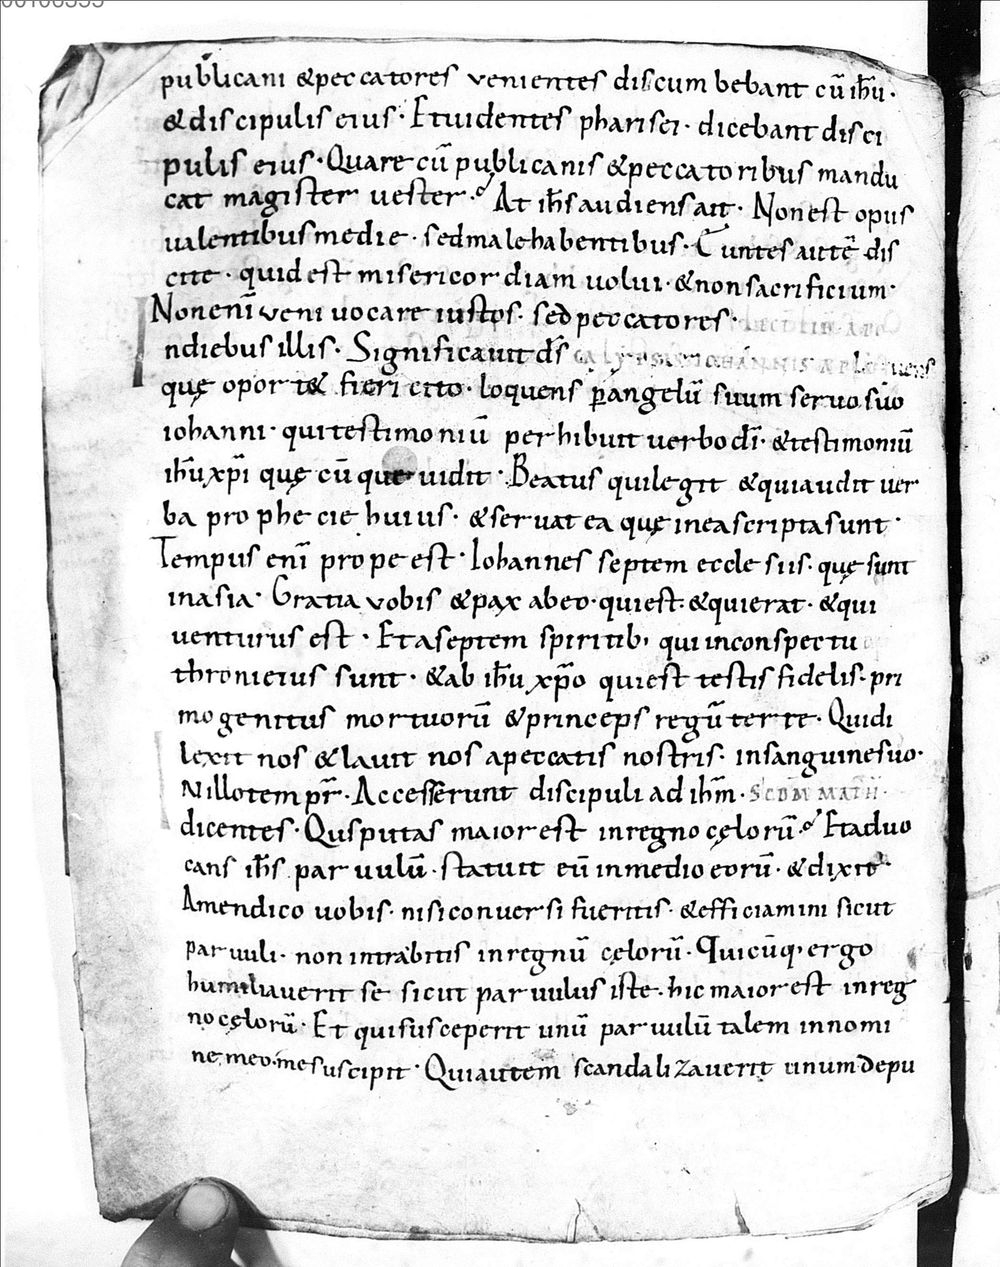 publicani &peccatores venientes discumbebant cū ih̄u·
&discipulis eius· Etuidentes pharisei· dicebant disci
pulis eius· Quare cū publicanis &peccatoribus mandu
cat magister uester· At ih̄s audiens ait· Nonest opus
ualentibus medie· sedmalehabentibus· Euntes autē dis
cite· quidest misericordiam uolui· &nonsacrificium·
Nonenī veni uocare iustos· sed peccatores·
Indiebus illis· Significauit ds̄
quę oport& fieri cito· loquens p̄angelū suum seruo suo
iohanni· quitestimoniū perhibuit uerbo dī· &testimoniū
ih̄uxp̄i quę cū que uidit· Beatus quilegit &quiaudit uer
ba prophecie huius· &seruat ea quę inea scriptasunt·
Tempus enī prope est· Iohannes septem ecclesiis· quę sunt
inasia· Gratia vobis &pax abeo· quiest· &quierat· &qui
uenturus est· Etaseptem spiritib; qui inconspectu
throni eius sunt· &ab ih̄u xp̄o quiest testis fidelis· pri
mogenitus mortuorū &princeps regū terre· Quidi
lexit nos &lauit nos apeccatis nostris· insanguinesuo·
Nillotempr̄· Accesserunt discipuli ad ih̄m· SCDM MATH·
dicentes· Qusputas maiorest inregno cęlorū· Etaduo
cans ih̄s paruulū· statuit eū inmedio eorū· &dixit·
Amendico uobis· nisi conuersi fueritis· &efficiamini sicut
paruuli· non intrabitis inregnū cęlorū· Quicūq; ergo
humiliauerit se sicut paruulus iste· hic maiorest inreg
no cęlorū· Et quisusceperit unū paruulū talem innomi
ne meo· mesuscipit· Quiautem scandalizauerit unumdepu